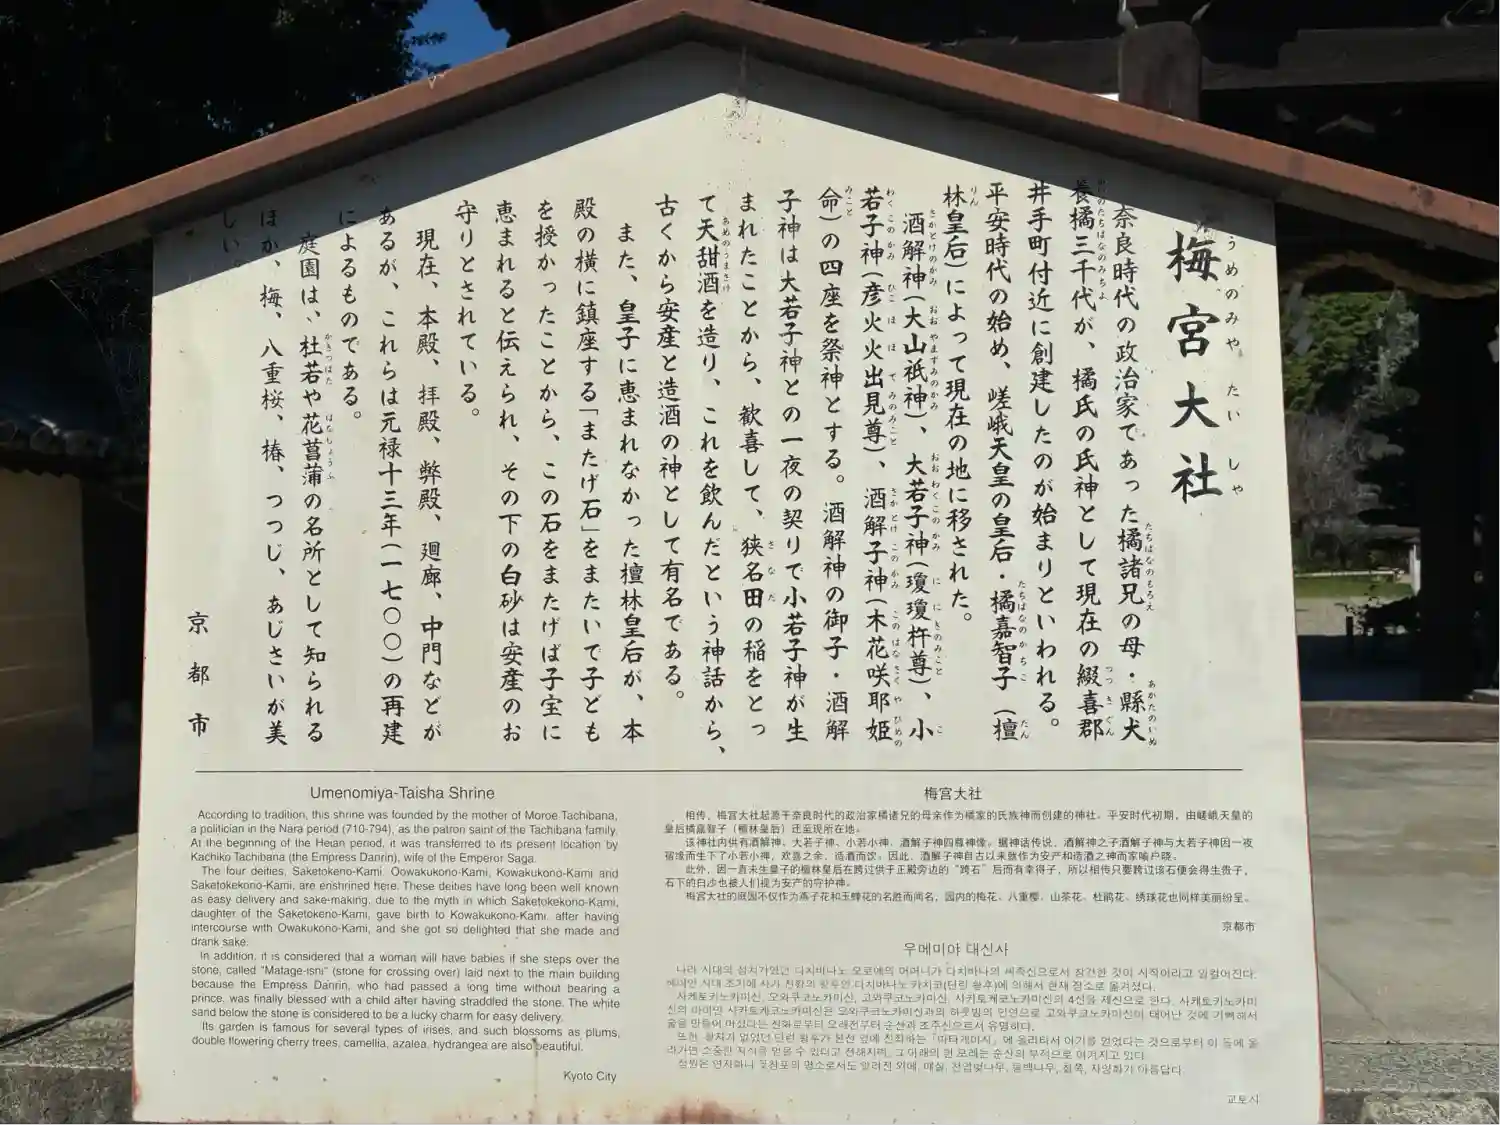 梅宮大社
うめのみや たいしゃ
奈良時代の政治家であった橘諸兄の母・縣犬
養橘三千代が、橘氏の氏神として現在の綴喜郡
井手町付近に創建したのが始まりといわれる。
平安時代の始め、嵯峨天皇の皇后・橘嘉智子(檀
林皇后)によって現在の地に移された。
酒解神(大山祇神)、大若子神(瓊瓊杵尊)、小
若子神(彦火火出見尊)、酒解子神(木花咲耶姫
命)の四座を祭神とする。酒解神の御子・酒解
子神は大若子神との一夜の契りで小若子神が生
まれたことから、歓喜して、狭名田の稲をとっ
て天甜酒を造り、これを飲んだという神話から、
古くから安産と造酒の神として有名である。
また、皇子に恵まれなかった檀林皇后が、本
殿の横に鎮座する「またげ石」をまたいで子ども
を授かったことから、この石をまたげば子宝に
恵まれると伝えられ、その下の白砂は安産のお
守りとされている。
現在、本殿、拝殿、弊殿、廻廊、中門などが
あるが、これらは元禄十三年(一七〇〇)の再建
によるものである。
庭園は、杜若や花菖蒲の名所として知られる
ほか、梅、八重桜、椿、つつじ、あじさいが美
しい。
京都市
Umenomiya-Taisha Shrine
According to tradition, this shrine was founded by the mother of Moroe Tachibana,
a politician in the Nara period (710-794), as the patron saint of the Tachibana family.
At the beginning of the Heian period, it was transferred to its present location by
Kachiko Tachibana (the Empress Danrin), wife of the Emperor Saga.
The four deities, Saketokeno-Kami, Oowakukono-Kami, Kowakukono-Kami and
Saketokekono-Kami, are enshrined here. These deities have long been well known
as easy delivery and sake-making, due to the myth in which Saketokekono-Kami,
daughter of the Saketokeno-Kami, gave birth to Kowakukono-Kami, after having
intercourse with Owakukono-Kami, and she got so delighted that she made and
drank sake.
In addition, it is considered that a woman will have babies if she steps over the
stone, called "Matage-ishi" (stone for crossing over) laid next to the main building
because the Empress Danrin, who had passed a long time without bearing a
prince, was finally blessed with a child after having straddled the stone. The white
sand below the stone is considered to be a lucky charm for easy delivery.
Its garden is famous for several types of irises, and such blossoms as plums,
double flowering cherry trees, camellia, azalea, hydrangea are also beautiful.
Kyoto City
梅宫大社
相传，梅宫大社起源于奈良时代的政治家橘诸兄的母亲作为橘家的氏族神而创建的神社。平安时代初期，由嵯峨天皇的
皇后橘嘉智子（檀林皇后）迁至现所在地。
该神社内供有酒解神、大若子神、小若子神、酒解子神四尊神像。据神话传说，酒解神之子酒解子神与大若子神因一夜
宿缘而生下了小若子神，欢喜之余，造酒而饮。因此，酒解子神自古以来就作为安产和造酒之神而家喻户晓。
此外，因一直未生皇子的檀林皇后在跨过供于正殿旁边的“跨石”后而有幸得子，所以相传只要跨过该石便会得生贵子，
石下的白沙也被人们视为安产的守护神。
梅宫大社的庭园不仅作为燕子花和玉蝉花的名胜而闻名，园内的梅花、八重樱、山茶花、杜鹃花、绣球花也同样美丽纷呈。
京都市
우메미야 대신사
교토시